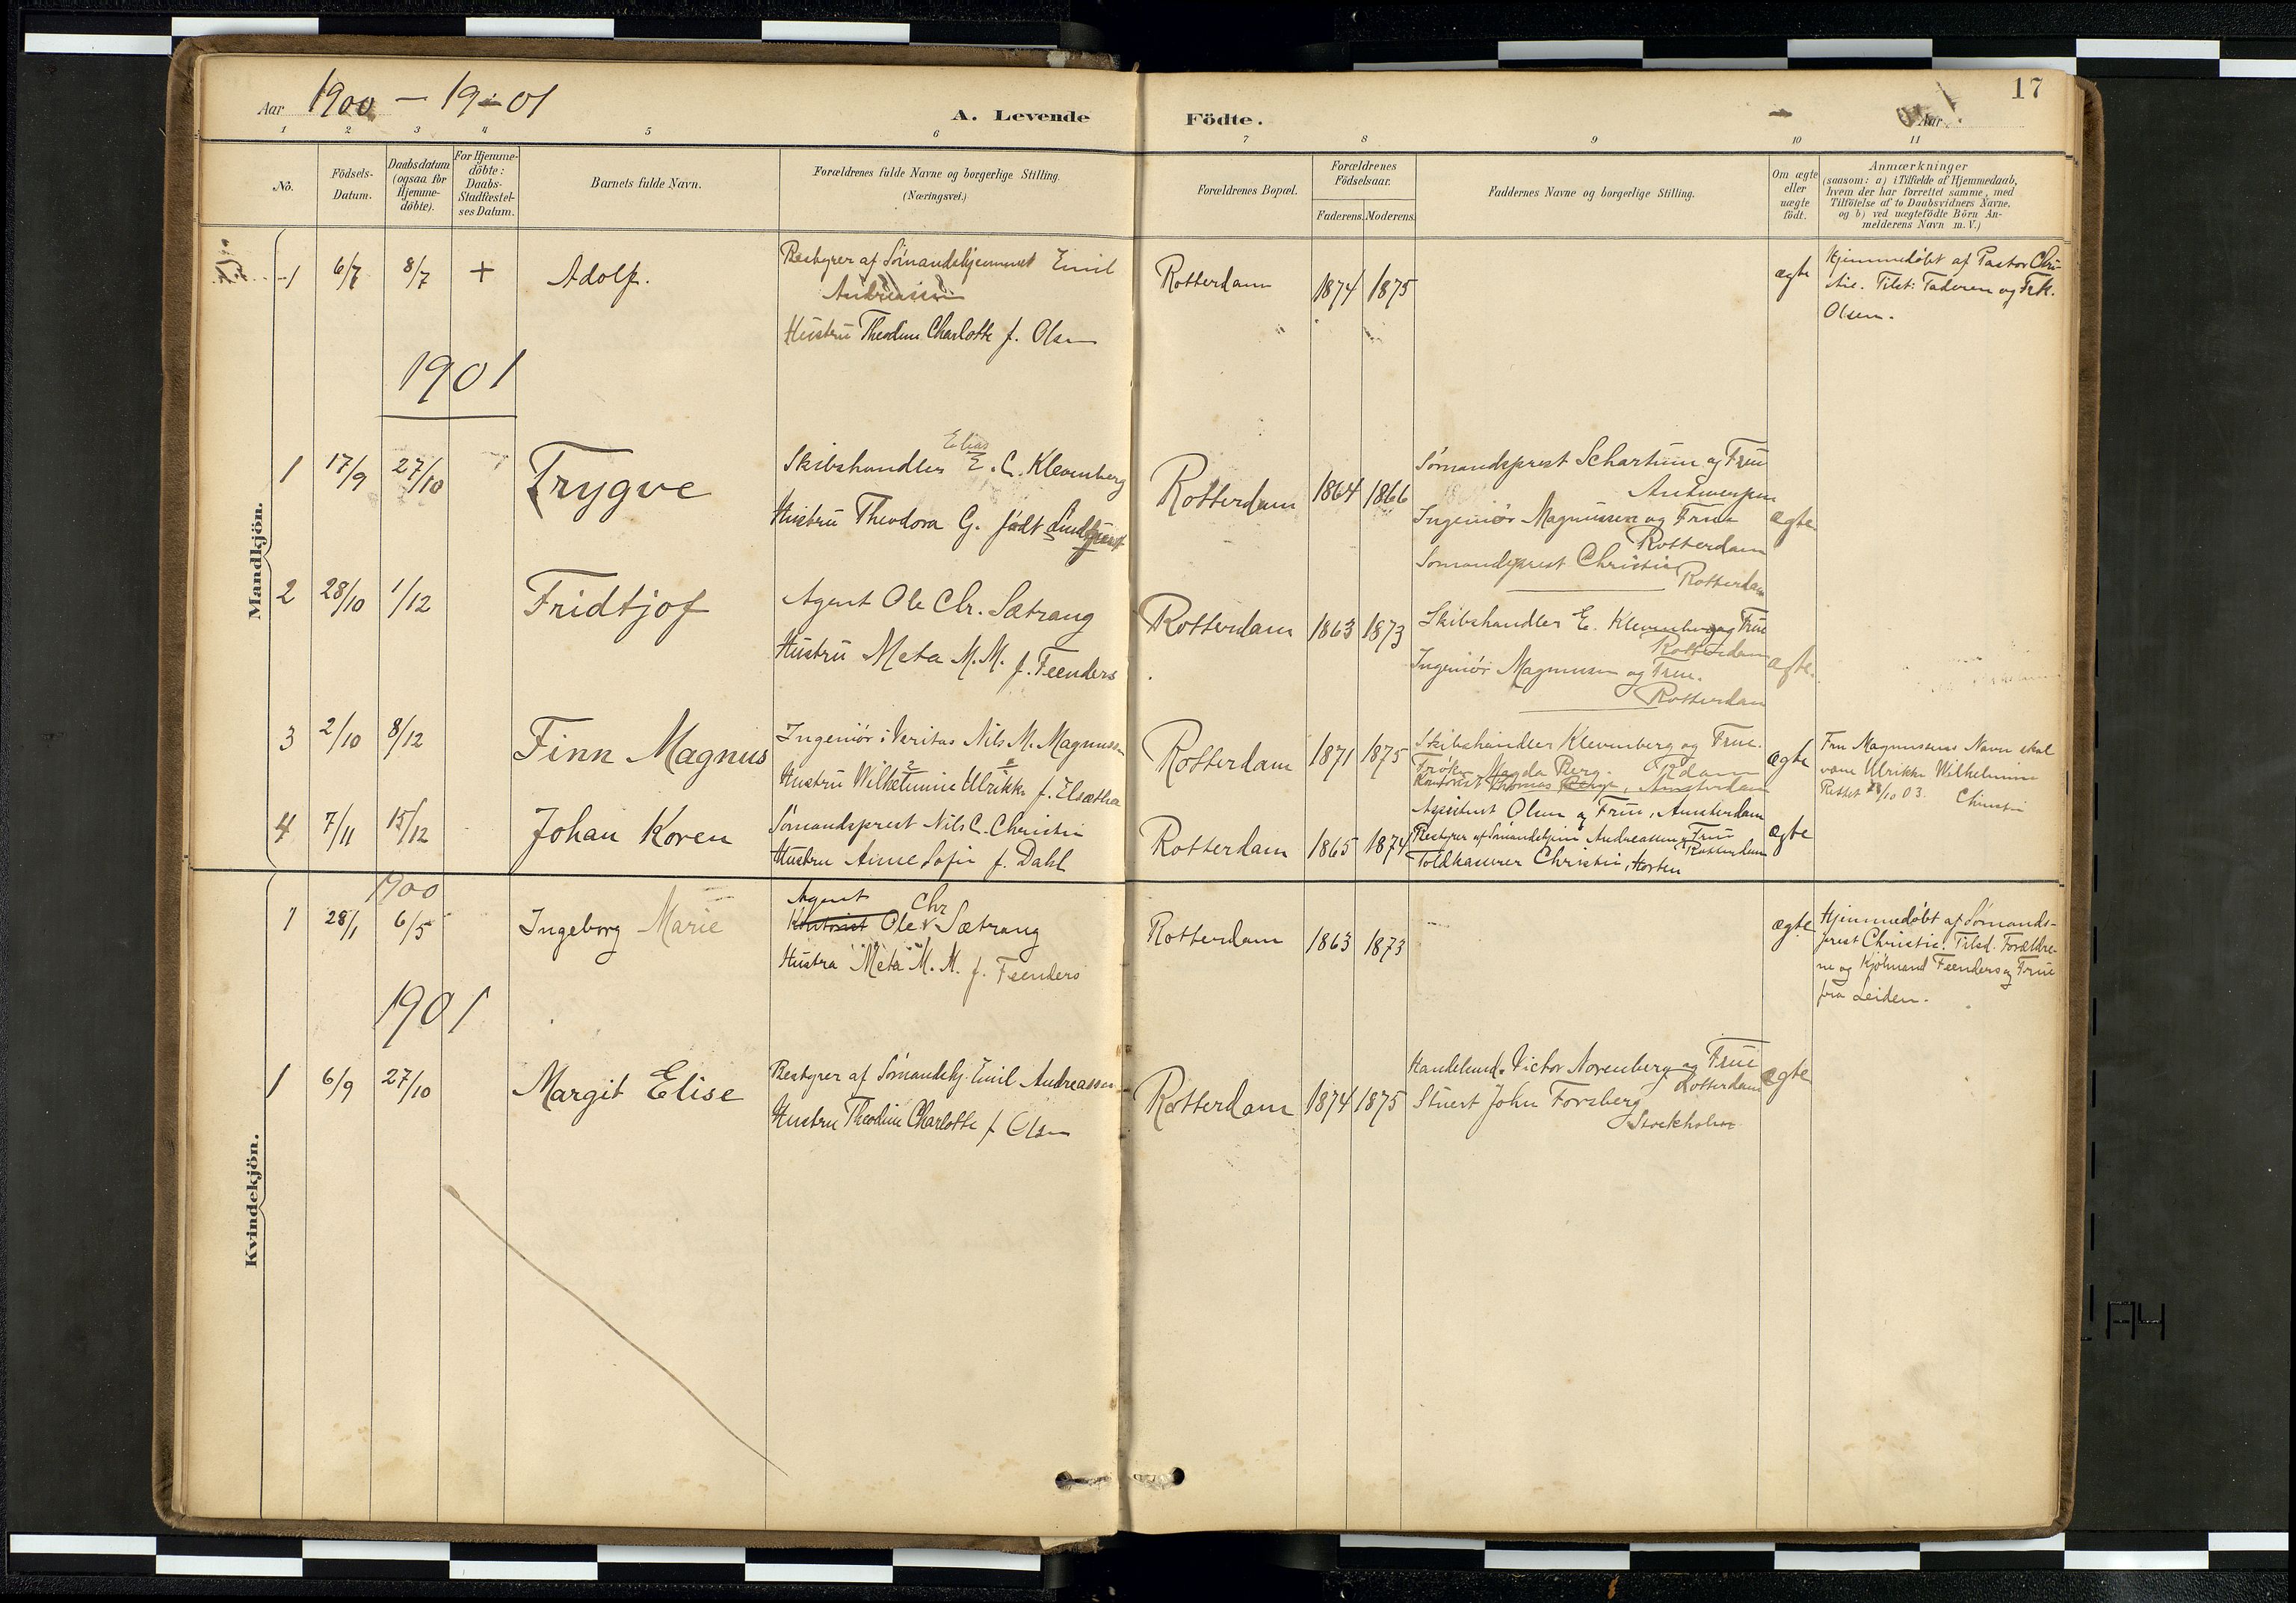 Aar 1900 - 1901
A. Levende
Födte.
Aar
17
1 2 3 4 5 6 7 8 9 10 11
No.
Födsels-
Datum.
Daabsdatum
(ogsaa for
Hjemme-
döbte).
For Hjemme-
döbte:
Daabs-
Stadfæstel-
ses Datum.
Barnets fulde Navn.
Forældrenes fulde Navne og borgerlige Stilling.
(Næringsvei.)
Forældrenes Bopæl.
Forældrenes
Födselsaar.
Faderens. Moderens.
Faddernes Navne og borgerlige Stilling.
Om ægte
eller
uægte
födt.
Anmærkninger
(saasom: a) i Tilfælde af Hjemmedaab,
hvem der har forrettet samme, med
Tilföielse af to Daabsvidners Navne,
og b) ved uægtefödte Börn An-
melderens Navn m. V.)
Mandkjön.
1 6/7 8/7 + Adolf.
Bestyrer af Sømandshjemmet Emil
Andreassen
Hustru Theodine Charlotte f. Olsen
Rotterdam 1874 1875
ægte
Hjemmedøbt af Pastor Chri-
stie. Tilst: Faderen og Frk.
Olsen.
1901
1 17/9 27/10 Trygve
Elias
Skibshandler E. C. Klevenberg
Hustru Theodora G. født
Rotterdam 1864 1866
Sømandsprest Schartum og Frue
Antwerpen
Ingeniør Magnussen og Frue
Rotterdam
Sømandsprest Christie
Rotterdam
ægte
2 28/10 1/12 Fridtjof
Agent Ole Chr. Sætrang
Hustru Meta M. M. f. Feenders
Rotterdam 1863 1873
Skibshandler E. Klevenberg og Frue
Rotterdam
Ingeniør Magnussen og Frue.
Rotterdam
ægte.
3 2/10 8/12 Finn Magnus
Ingeniør i Veritas Nils M. Magnussen
Hustru Wilhelmine Ulrikke f. Elsætha
Rotterdam 1871 1875
Skibshandler Klevenberg og Frue.
Frøken Magda Berg. R'dam
Kontorist Thomas Amsterdam
ægte
Fru Magnussens Navn skal
være Ulrikke Wilhelmine
Rettet 28/10 03. Christie
4 7/11 15/12 Johan Koren
Sømandsprest Nils C. Christie
Hustru Anne Sofie f. Dahl
Rotterdam 1865 1874
Assistent Olsen og Frue, Amsterdam
Bestyrer af Sømandshjem Andreassen og Frue
Rotterdam
Toldkasserer Christie, Horten
ægte
Kvindekjön.
1900
1 28/1 6/5 Ingeborg Marie
Agent Chr
Kontorist Ole Sætrang
Hustru Meta M. M. f. Feenders
Rotterdam 1863 1873
ægte
Hjemmedøbt af Sømands-
prest Christie. Tilst. Forældre-
ne og Kjøbmand Feenders og Frue
fra Leiden.
1901
1 6/9 27/10 Margit Elise
Bestyrer af Sømandshj. Emil Andreassen
Hustru Theodine Charlotte f. Olsen
Rotterdam 1874 1875
Handelsmd. Victor Norenberg og Frue
Rotterdam
Stuert John Forsberg
Stockholm
ægte